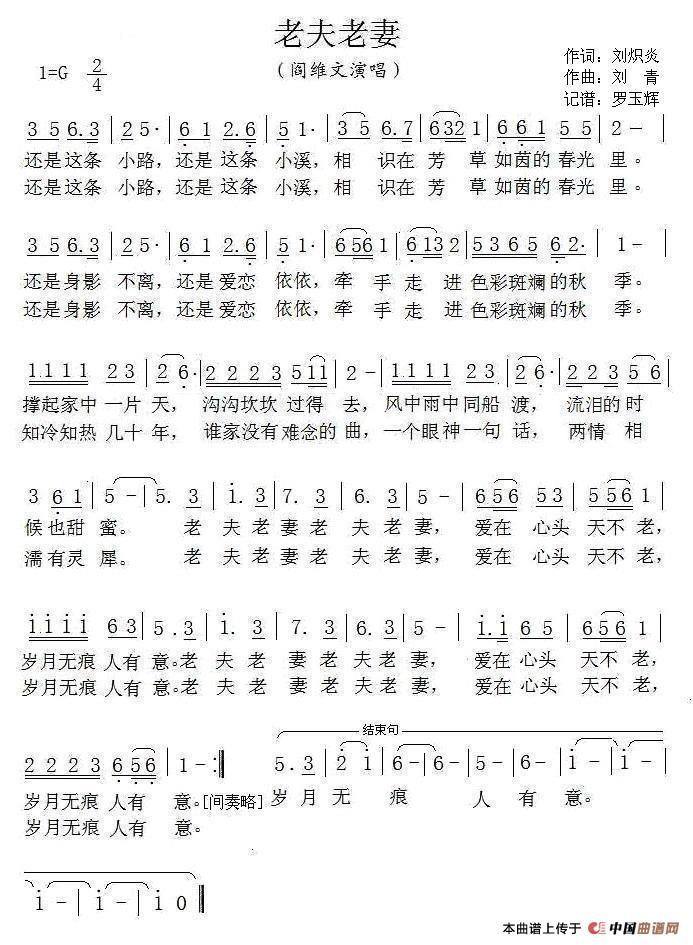 老夫老妻
(阎维文演唱)
1=G 2/4
作词：刘炽炎
作曲：刘 青
记谱：罗玉辉
3 5 6.3 | 2 5· | 6 1 2.6 | 5 1· | 3 5 6.7 | 6 32 1 | 6 6 1 5 5 | 2 - |
还是这条 小路，还是 这条 小溪，相 识在 芳 草 如茵的 春光 里。
还是这条 小路，还是 这条 小溪，相 识在 芳 草 如茵的 春光 里。
3 5 6.3 | 2 5· | 6 1 2.6 | 5 1· | 6 56 1 | 6 13 2 | 5 3 6 5 6 2· | 1 - |
还是身影 不离，还是 爱恋 依依，牵 手 走 进 色彩斑斓的秋 季。
还是身影 不离，还是 爱恋 依依，牵 手 走 进 色彩斑斓的秋 季。
1.1 1 1 2 3 | 2 6· | 2 2 2 3 5 11 | 2 - | 1.1 1 1 2 3 | 2 6· | 2 2 3 5 6 |
撑起家中 一片 天， 沟沟坎坎 过得 去，风中雨中 同船 渡， 流泪的 时
知冷知热 几十 年， 谁家没有 难念的 曲，一个眼神 一句 话， 两情 相
3 6 1 | 5 - | 5. 3 | 1. 3 | 7. 3 | 6. 3 | 5 - | 6 56 5 3 | 5 56 1 |
候也甜 蜜。 老 夫 老 妻 老 夫 老 妻， 爱在 心头 天不 老，
濡有灵 犀。 老 夫 老 妻 老 夫 老 妻， 爱在 心头 天不 老，
1 1 1 1 6 3 | 5 . 3 | 1. 3 | 7. 3 | 6. 3 | 5 - | 1.1 6 5 | 5 56 5 |
岁月无痕 人有 意。老 夫 老 妻 老 夫 老 妻， 爱在 心头 天不 老，
岁月无痕 人有 意。老 夫 老 妻 老 夫 老 妻， 爱在 心头 天不 老，
结束句
2 2 2 3 6 56 | 1 - :‖ 5 . 3 | 2 1 | 6 - | 6 - | 5 - | 6 - | 1 - | 1 - |
岁月无痕 人有 意。[间奏略] 岁 月 无 痕 人 有 意。
岁月无痕 人有 意。
1 - | 1 - | 1 0 ‖
本曲谱上传于 中国曲谱网